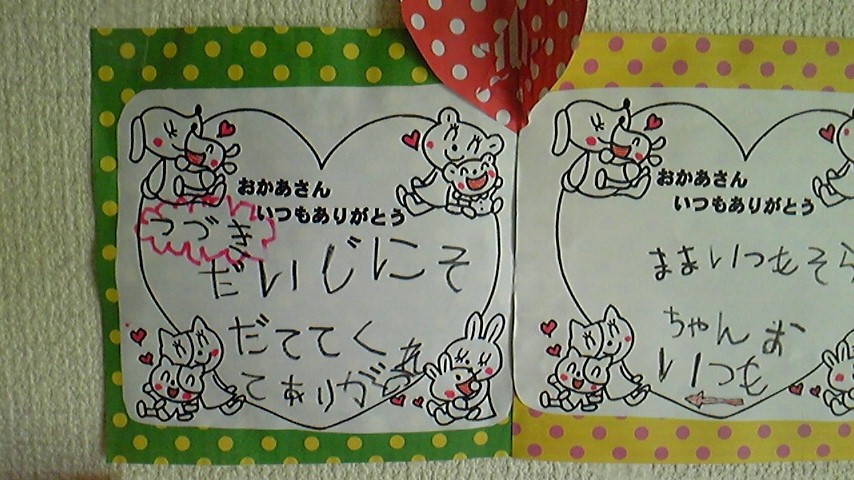 おかあさん
いつもありがとう
つづき
だいじにそ
だててくれ
てありがとう
おかあさん
いつもありがとう
ままいつもそら
ちゃんお
いつも